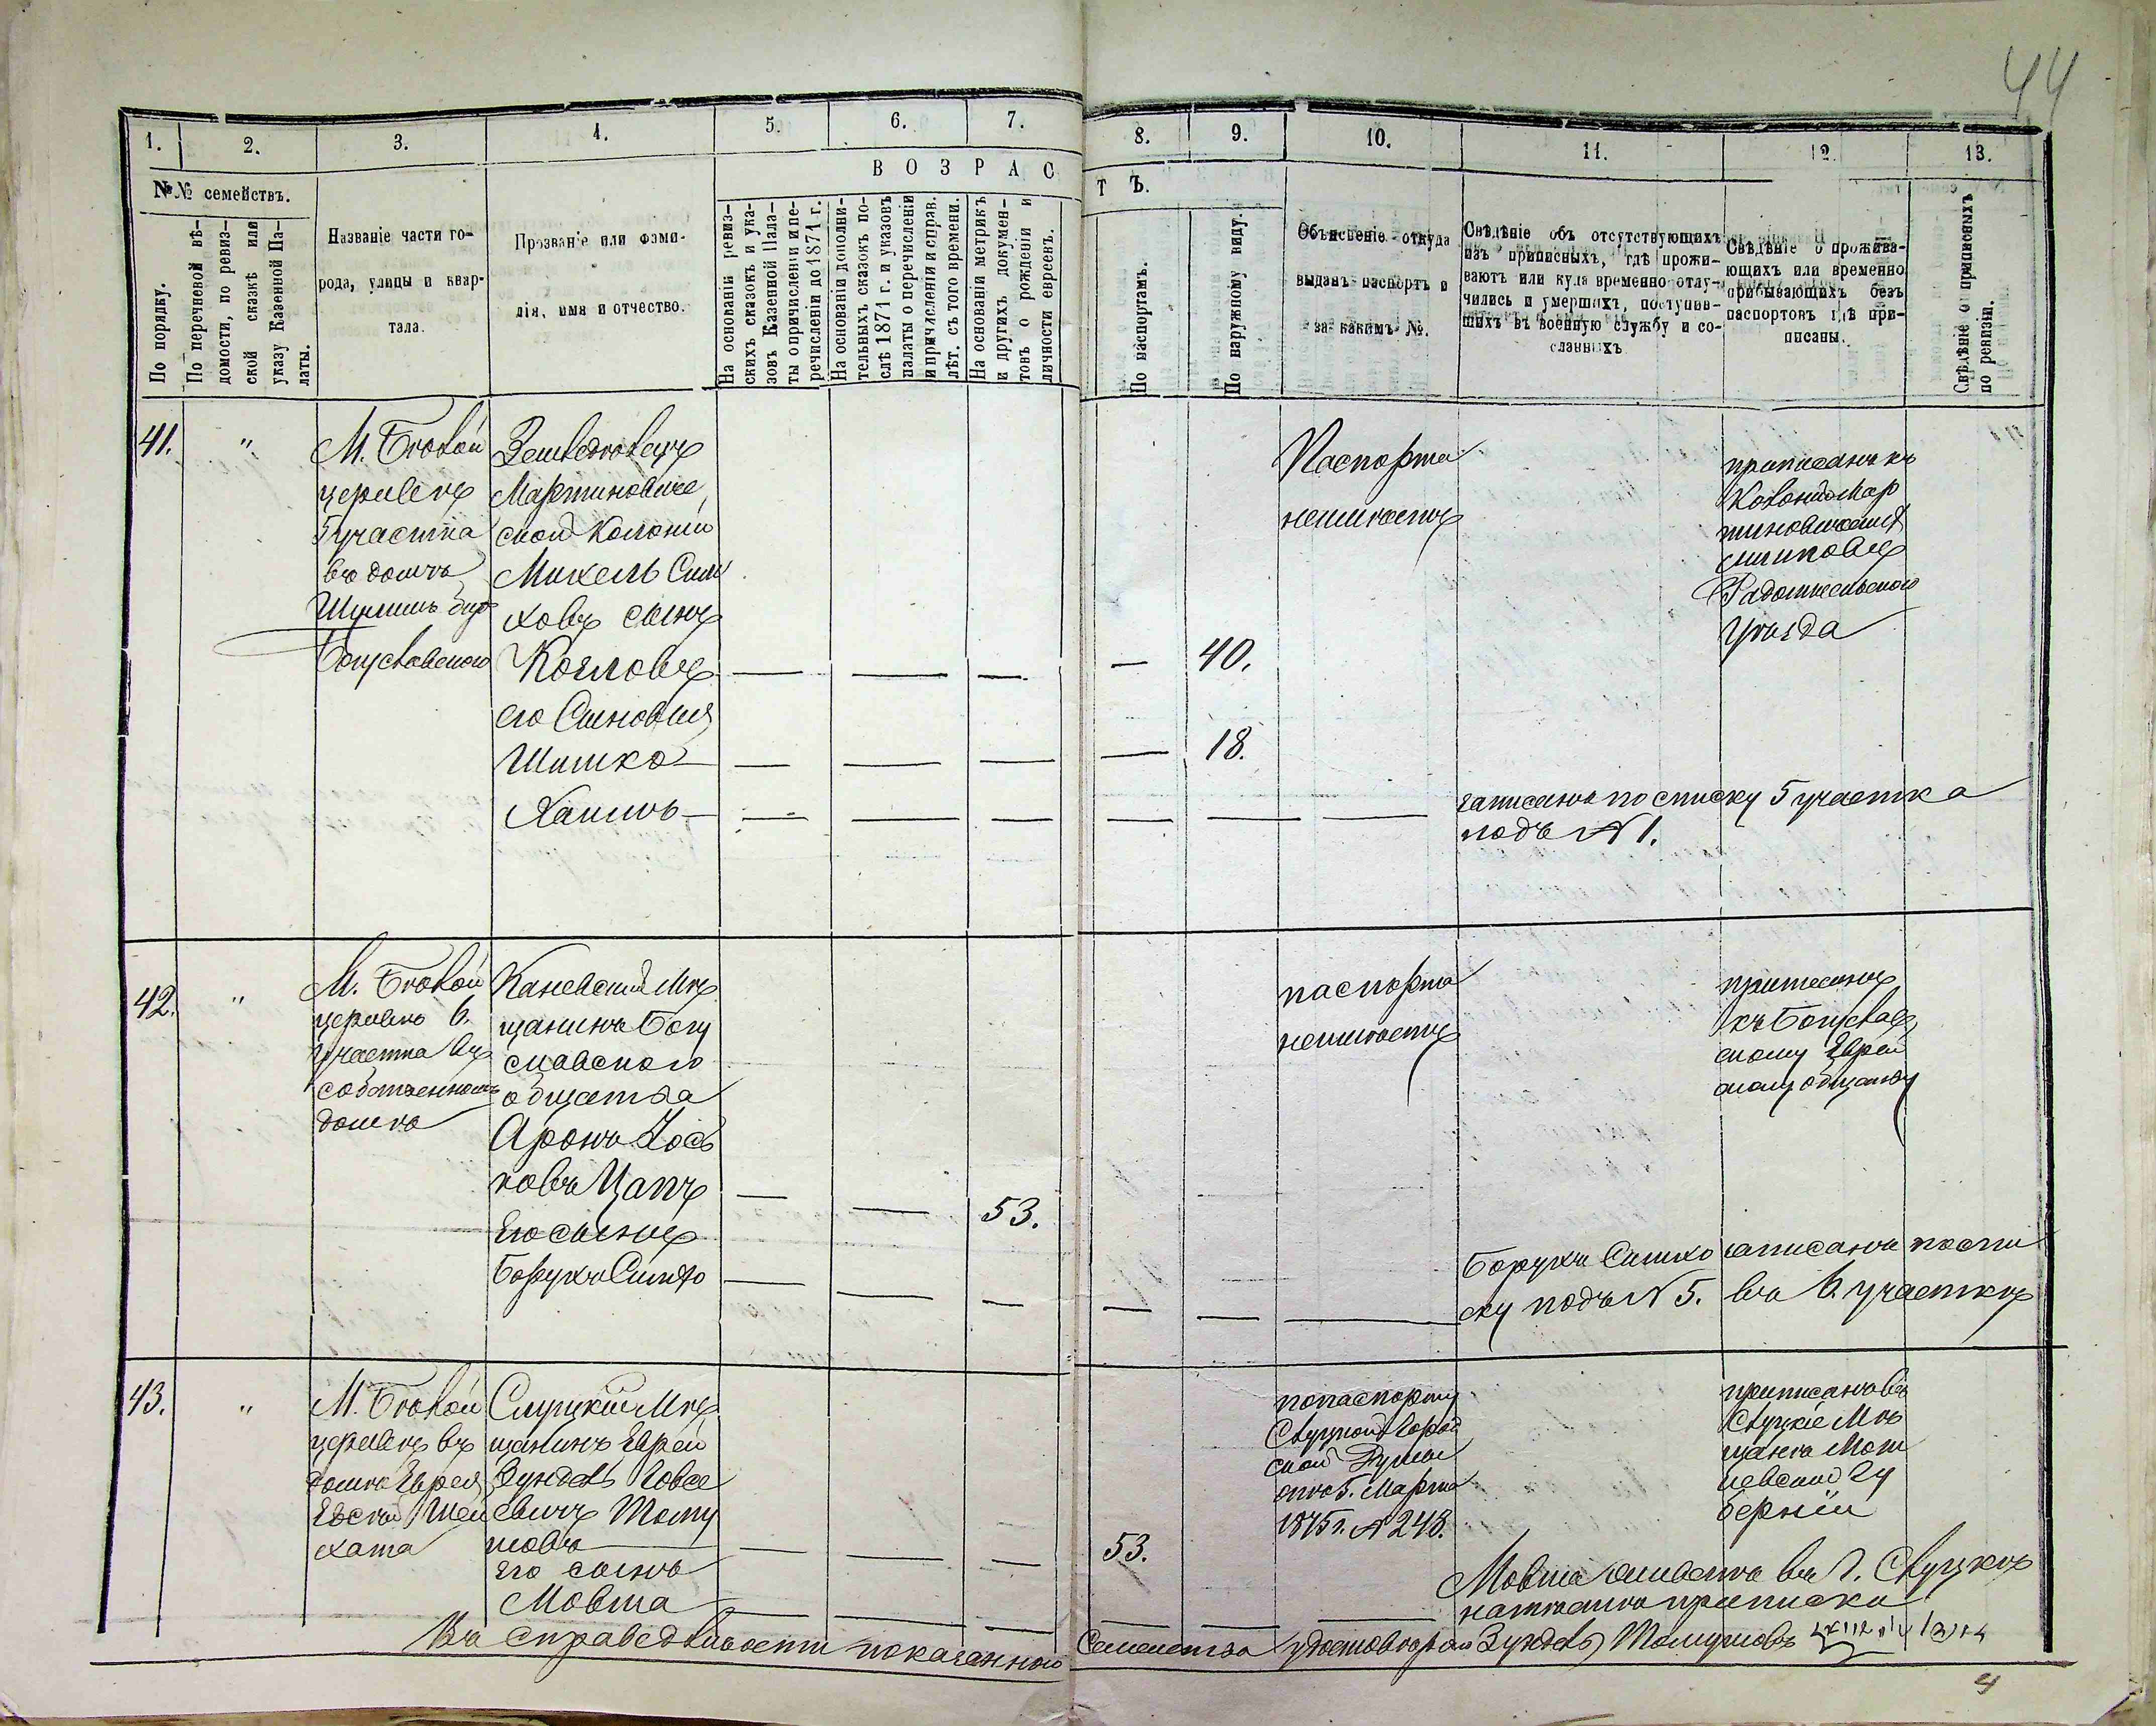 44
1. 2. 3. 4. 5. 6. 7. 8. 9. 10. 11. 12. 13.
№№ семействъ.
В О З Р А С Т Ъ.
По порядку.
По перечневой вѣ-
домости, по ревиз-
ской сказкѣ или
указу Казенной Па-
латы.
Названіе части го-
рода, улицы и квар-
тала.
Прозваніе или фами-
лія, имя и отчество.
На основаніи ревиз-
скихъ сказокъ и ука-
зовъ Казенной Пала-
ты о причисленіи и пе-
речисленіи до 1871 г.
На основаніи дополни-
тельныхъ сказокъ по-
слѣ 1871 г. и указовъ
палаты о перечисленіи
и причисленіи и справ.
лѣт. съ того времени.
На основаніи метрикъ
и другихъ докумен-
товъ о рожденіи и
личности евреевъ.
По паспортамъ.
По наружному виду.
Объясненіе откуда
выданъ паспортъ и
за какимъ №.
Свѣдѣніе объ отсутствующихъ
изъ приписныхъ, гдѣ прожи-
ваютъ или куда временно отлу-
чились и умершихъ, поступив-
шихъ въ военную службу и со-
сланныхъ
Свѣдѣніе о прожива-
ющихъ или временно
прибывающихъ безъ
паспортовъ гдѣ при-
писаны.
Свѣдѣніе о приписныхъ
по ревизіи.
41. "
М. Бѣлой
церквѣ
5 участка
въ домѣ
Богуславского
Мартиновиче
ской Колоніи
Михель Сим
ховъ сынъ
Козловъ — — — — 40.
его Сыновья
Шимко — — — — — 18.
Хаимъ — — — — — — —
Паспорта
неимѣетъ
записанъ по списку 5 участка
подъ № 1.
приписанъ къ
Колоніи Мар
Радомысльского
Уѣзда
42. "
М. Бѣлой
церквѣ 6.
участка въ
собственномъ
домѣ
Каневскій Мѣ
щанинъ Богу
славского
общества
Аронъ Іось
ковъ Цапъ — — 53.
Его сынъ
Борухъ Симхо — — — — — —
паспорта
неимѣетъ
Борухъ Симхо записанъ по спи
ску подъ № 5. въ 6. участкѣ
приписанъ
къ Богуслав
скому Еврей
скому обществу
43. "
М. Бѣлой
церквѣ въ
домѣ Еврея
хата
Слуцкій Мѣ
щанинъ Еврей
Зундель Говсе
евичъ Тому
шовъ — — — — 53.
Его сынъ
Мовша — — — — —
по паспорту
Слуцкой Город
ской Думы
отъ 5. Марта
1875 г. № 248.
Мовша живетъ въ г. Слуцкѣ
приписанъ въ
Слуцкіе Мѣ
щане Мог
илевской Гу
берніи
Въ справедливости показанного Семейства удостовѣряю Зундель Томушовъ
4